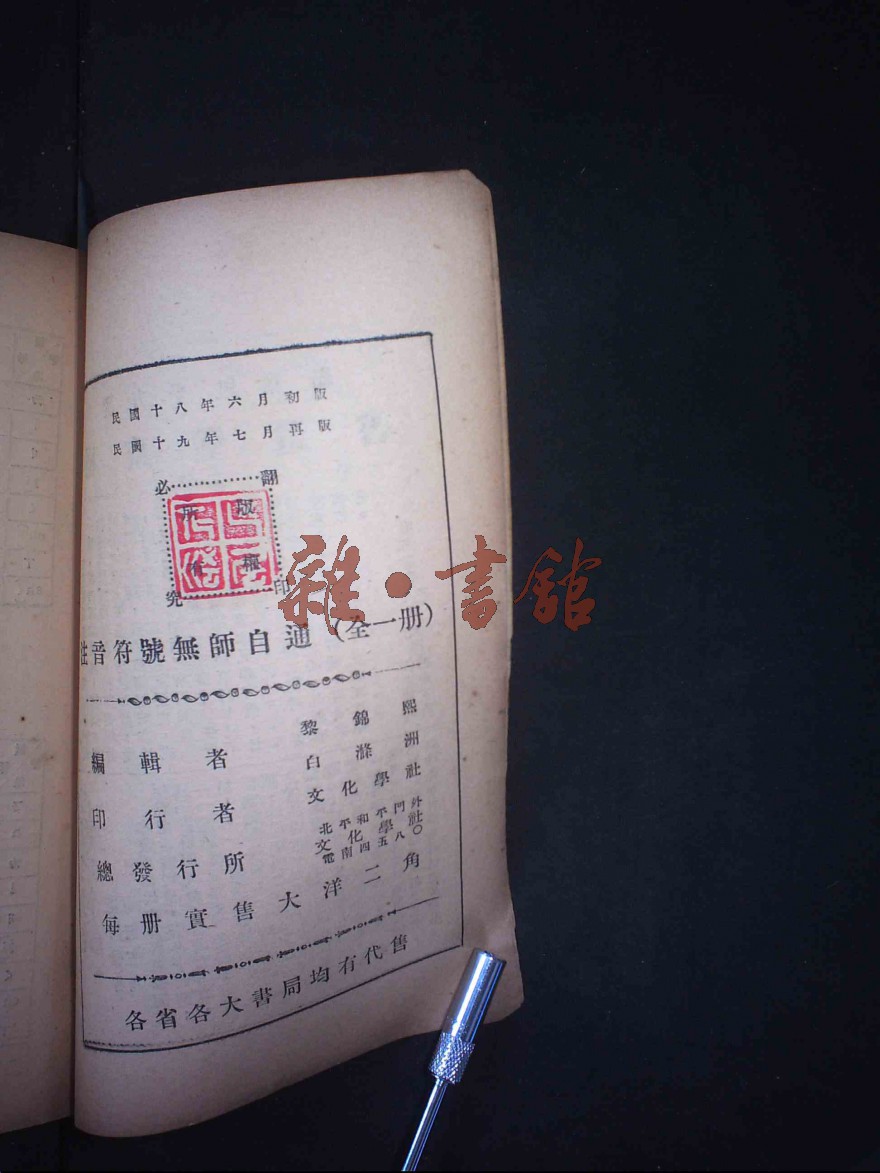 民國十八年六月初版
民國十九年七月再版
翻印必究
版權所有
雜·書館
注音符號無師自通（全一册）
編輯者 黎錦熙 白滌洲
印行者 文化學社
總發行所 北平和平門外 文化學社 電南四五八〇
每册實售大洋二角
各省各大書局均有代售